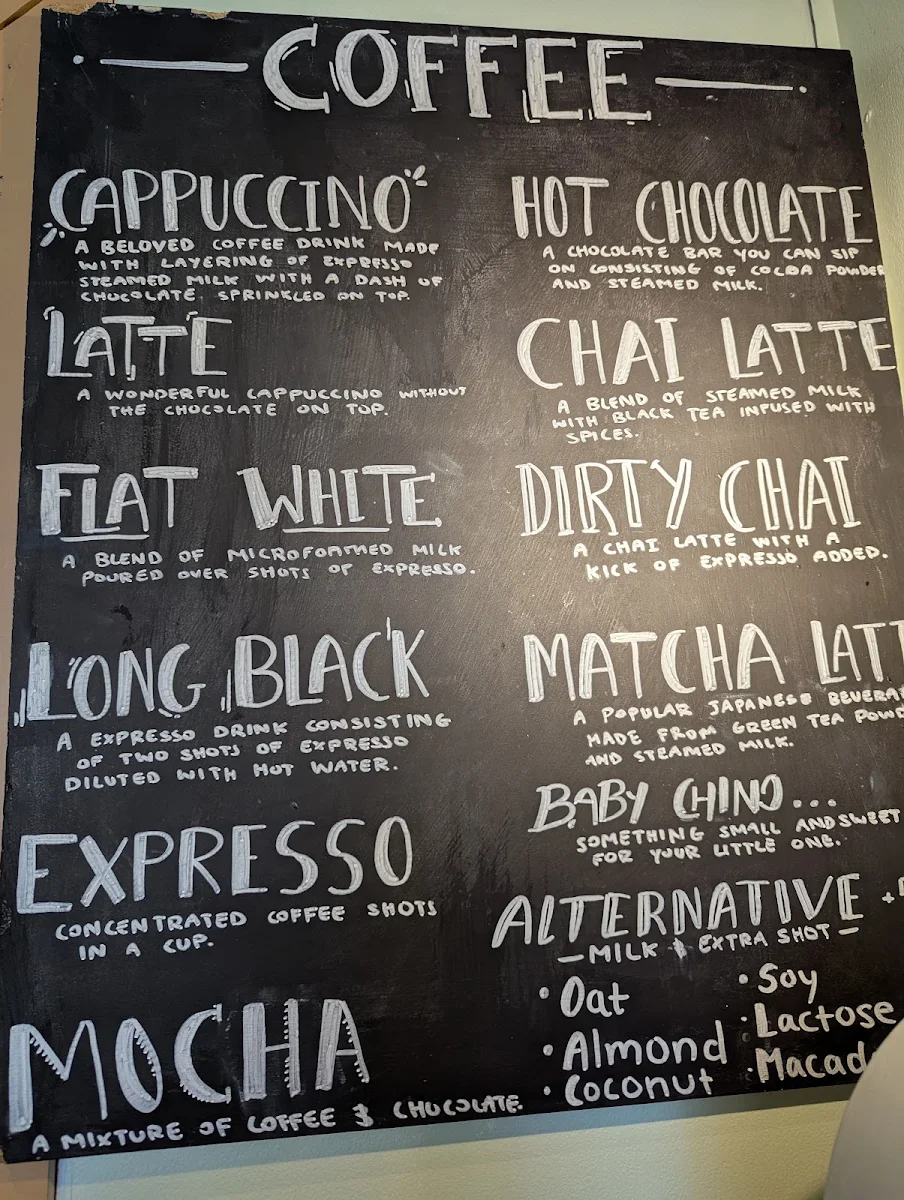 COFFEE
CAPPUCCINO
A BELOVED COFFEE DRINK MADE
WITH LAYERING OF EXPRESSO
STEAMED MILK WITH A DASH OF
CHOCOLATE SPRINKLED ON TOP.
LATTE
A WONDERFUL CAPPUCCINO WITHOUT
THE CHOCOLATE ON TOP.
FLAT WHITE
A BLEND OF MICROFORMED MILK
POURED OVER SHOTS OF EXPRESSO.
LONG BLACK
A EXPRESSO DRINK CONSISTING
OF TWO SHOTS OF EXPRESSO
DILUTED WITH HOT WATER.
EXPRESSO
CONCENTRATED COFFEE SHOTS
IN A CUP.
MOCHA
A MIXTURE OF COFFEE & CHOCOLATE.
HOT CHOCOLATE
A CHOCOLATE BAR YOU CAN SIP
ON CONSISTING OF COCOA POWDER
AND STEAMED MILK.
CHAI LATTE
A BLEND OF STEAMED MILK
WITH BLACK TEA INFUSED WITH
SPICES.
DIRTY CHAI
A CHAI LATTE WITH A
KICK OF EXPRESSO ADDED.
MATCHA LATT
A POPULAR JAPANESE BEVERA
MADE FROM GREEN TEA POWD
AND STEAMED MILK.
BABY CHINO...
SOMETHING SMALL AND SWEET
FOR YOUR LITTLE ONE.
ALTERNATIVE +
— MILK & EXTRA SHOT —
• Oat
• Almond
• Coconut
• Soy
• Lactose
• Macad